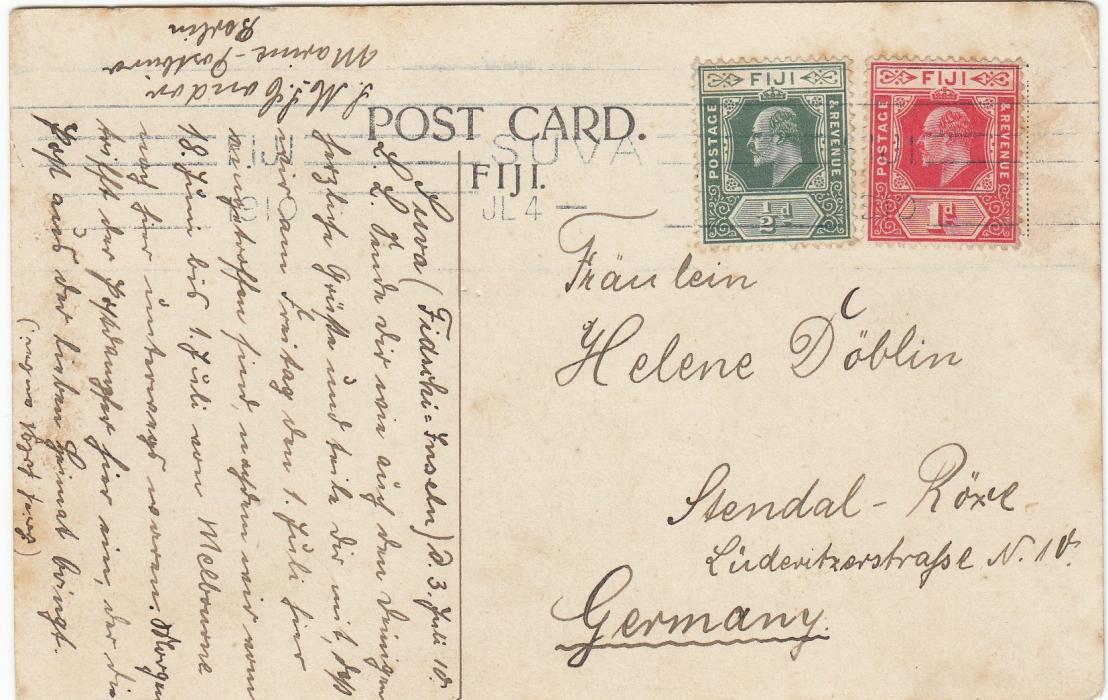 POST CARD.
FIJI.
FIJI
1910
SUVA
JL 4 —
FIJI
POSTAGE
& REVENUE
½d
FIJI
POSTAGE
& REVENUE
1d
Fräulein
Helene Döblin
Stendal - Röxe
Lüderitzerstraße N. 10.
Germany
S.M.S. Condor
Marine-Postbüro
Berlin
Suva (Fidschi=Inseln) d. 3. Juli 10.
L. L. Sende dir wie auch den Deinigen
herzliche Grüße und teile Dir mit, daß
wir am Freitag den 1. Juli hier
eingetroffen sind, nachdem wir vom
18 Juni bis 1. Juli von Melbourne
nach hier unterwegs waren. Morgen
trifft der Postdampfer hier ein, der die
Post aus der lieben Heimat bringt.